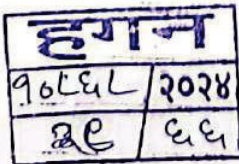 हगन
१०८६८ २०२४
३९ ६६